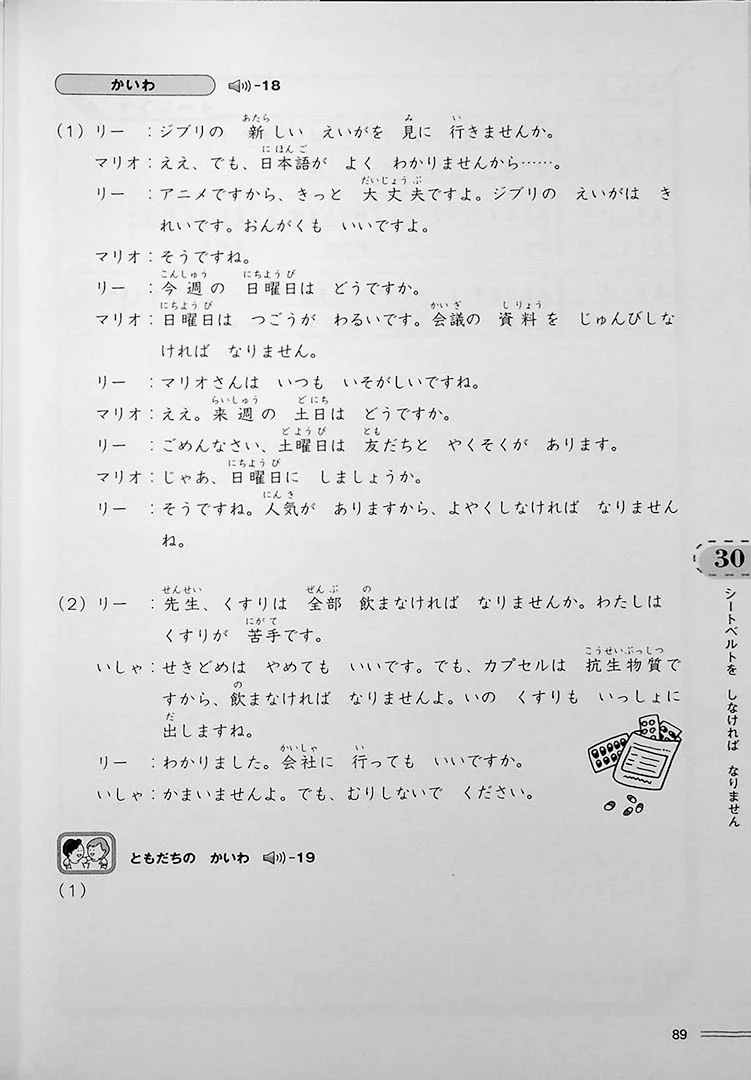 かいわ -18
(1) リー ：ジブリの 新しい えいがを 見に 行きませんか。
マリオ：ええ、でも、日本語が よく わかりませんから……。
リー ：アニメですから、きっと 大丈夫ですよ。ジブリの えいがは き
れいです。おんがくも いいですよ。
マリオ：そうですね。
リー ：今週の 日曜日は どうですか。
マリオ：日曜日は つごうが わるいです。会議の 資料を じゅんびしな
ければ なりません。
リー ：マリオさんは いつも いそがしいですね。
マリオ：ええ。来週の 土日は どうですか。
リー ：ごめんなさい、土曜日は 友だちと やくそくが あります。
マリオ：じゃあ、日曜日に しましょうか。
リー ：そうですね。人気が ありますから、よやくしなければ なりません
ね。
(2) リー ：先生、くすりは 全部 飲まなければ なりませんか。わたしは
くすりが 苦手です。
いしゃ：せきどめは やめても いいです。でも、カプセルは 抗生物質で
すから、飲まなければ なりませんよ。いの くすりも いっしょに
出しますね。
リー ：わかりました。会社に 行っても いいですか。
いしゃ：かまいませんよ。でも、むりしないで ください。
ともだちの かいわ -19
(1)
30
シートベルトを しなければ なりません
89